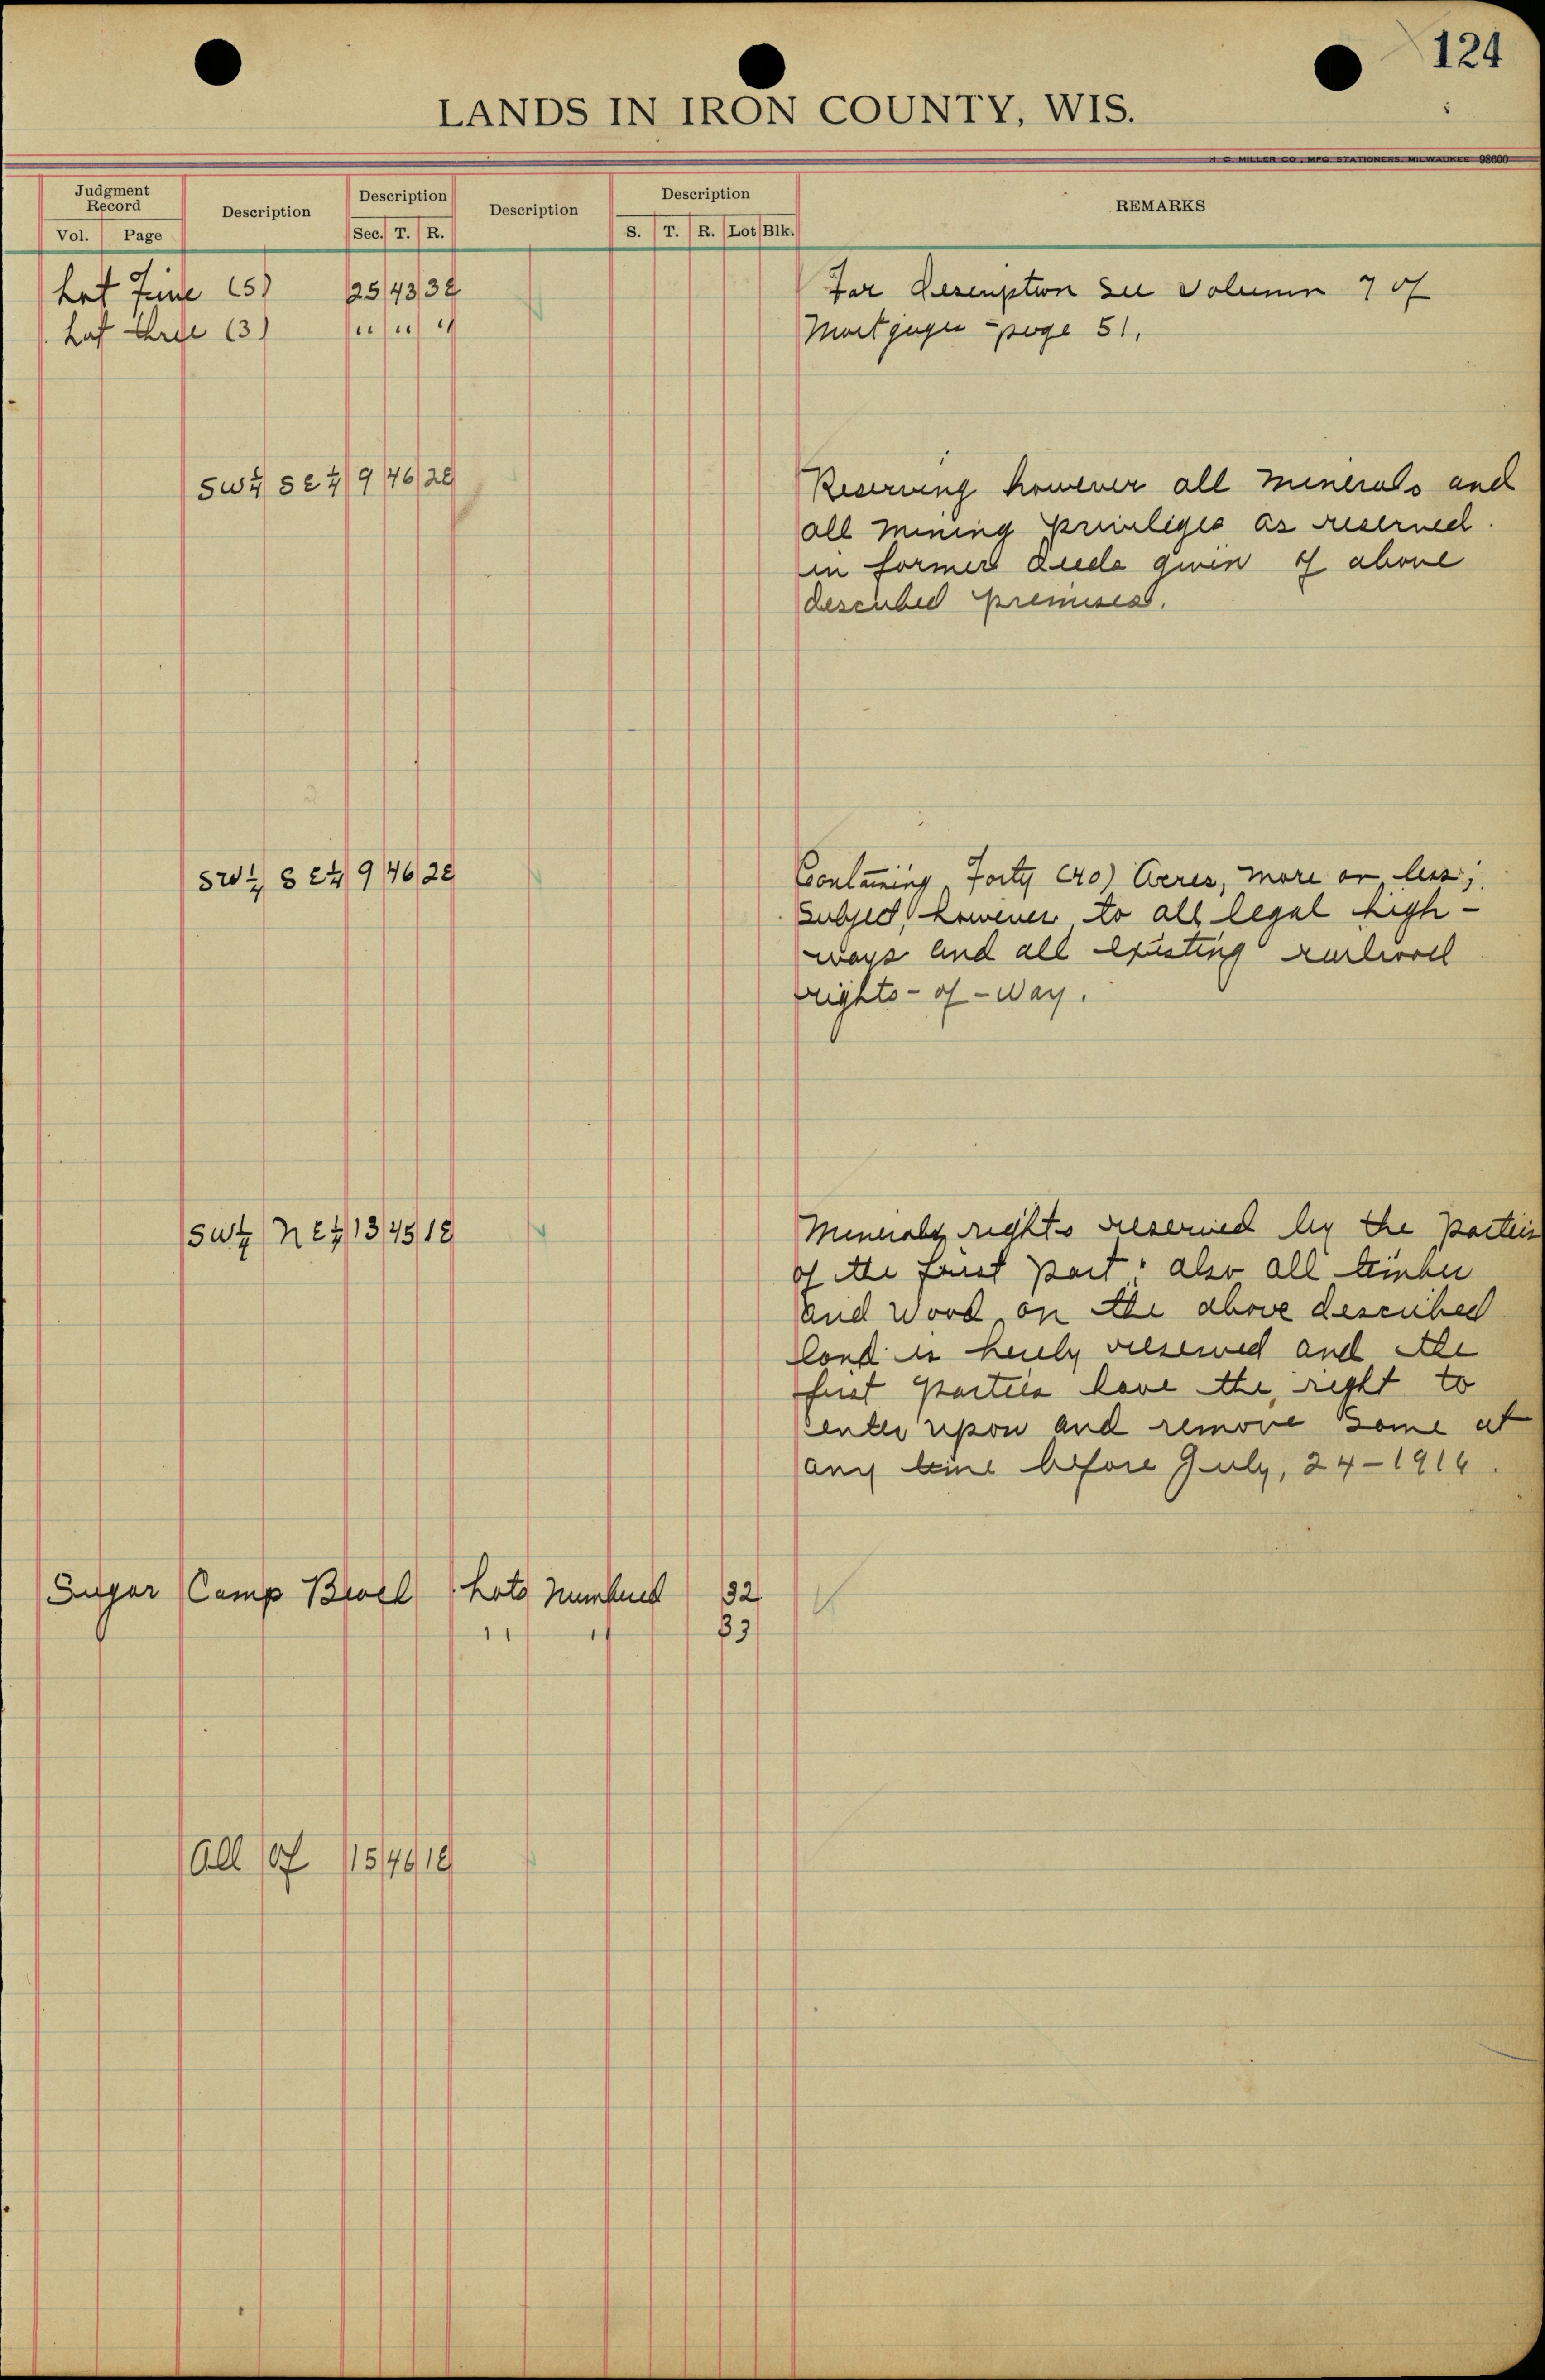 124
LANDS IN IRON COUNTY, WIS.
H. C. MILLER CO., MFG STATIONERS, MILWAUKEE 98600
Judgment Record
Vol. Page
Description
Description
Sec. T. R.
Description
Description
S. T. R. Lot Blk.
REMARKS
Lot Five (5) 25 43 3E For description see volumn 7 of
Lot three (3) " " " Mortgages - page 51.
SW¼ SE¼ 9 46 2E Reserving however all minerals and
all mining priviliges as reserved
in former deeds given of above
described premises.
SW¼ SE¼ 9 46 2E Containing Forty (40) Acres, more or less;
subject, however to all legal high-
ways and all existing railroad
rights-of-way.
SW¼ NE¼ 13 45 1E rights reserved by the parties
of the first part; also all timber
and wood on the above described
land is hereby reserved and the
first parties have the right to
enter upon and remove same at
any time before July, 24-1916.
Sugar Camp Lots Numbered 32
" " 33
All of 15 46 1E